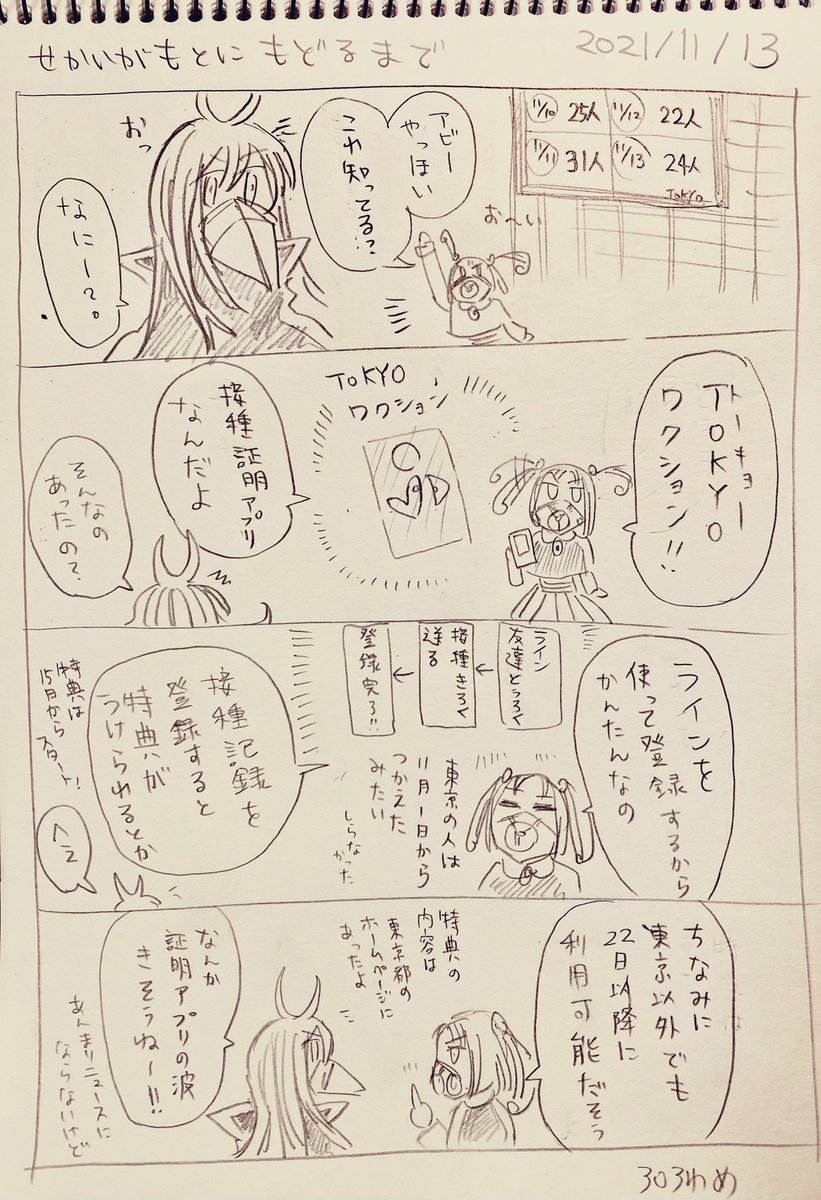 せかいがもとにもどるまで
2021/11/13
11/10 25人
11/12 22人
11/11 31人
11/13 24人
TOKYO
お〜い
アビー
やっほい
これ知ってる?
おっ
なにー?。
トーキョー
TOKYO
ワクション!!
TOKYO
ワクション
接種証明アプリ
なんだよ
そんなの
あったの?
ラインを
使って登録するから
かんたんなの
ライン
友達とうろく
接種きろく
送る
登録完了!!
東京の人は
11月1日から
つかえた
みたい
しらな
かった
接種記録を
登録すると
特典が
うけられるとか
特典は
15日から
スタート!
へえ
ちなみに
東京以外でも
22日以降に
利用可能だそう
特典の
内容は
東京都の
ホームページに
あったよ
なんか
証明アプリの波
きそうねー!!
あんまりニュースに
ならないけど
303わめ